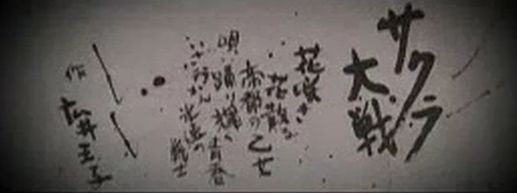 サクラ
大戦
花咲き
花散る
帝都の乙女
唄 踊り 輝く 青春
いざ行かん 光速の
戦士
作 広井王子